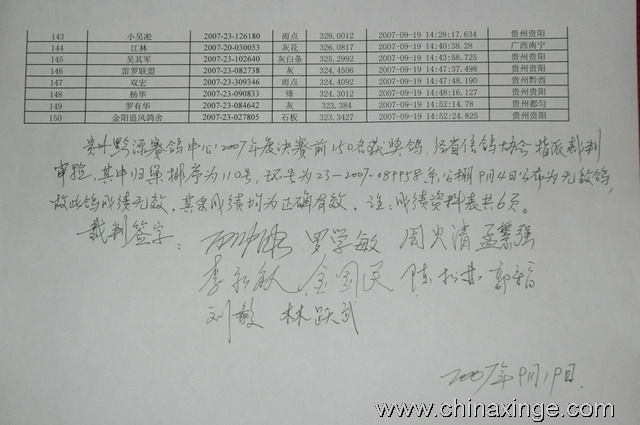 143 小吴淞 2007-23-126180 雨点 329.0012 2007-09-19 14:28:17.634 贵州贵阳
144 江林 2007-20-030053 灰花 326.0817 2007-09-19 14:40:38.28 广西南宁
145 吴其军 2007-23-102640 灰白条 325.2992 2007-09-19 14:43:58.725 贵州贵阳
146 雷罗联盟 2007-23-082738 灰 324.4506 2007-09-19 14:47:37.498 贵州贵阳
147 双宏 2007-23-309346 雨点 324.4092 2007-09-19 14:47:48.190 贵州黔西
148 杨华 2007-23-090833 绛 324.3012 2007-09-19 14:48:16.127 贵州贵阳
149 罗有华 2007-23-084642 灰 323.384 2007-09-19 14:52:14.78 贵州都匀
150 金阳追风鸽舍 2007-23-027805 石板 323.3427 2007-09-19 14:52:24.825 贵州贵阳
贵州黔源赛鸽中心2007年度决赛前150名获奖鸽,经省信鸽协会指派裁判
审验,其中归巢排序为110号,环号为23-2007-089958系公棚9月4日公布为无效鸽,
故此鸽成绩无效,其余成绩均为正确有效。注:成绩资料表共6页。
裁判签字: 罗学敏
金国民
刘毅 林跃武
2007年9月19日.
www.chinaxinge.com